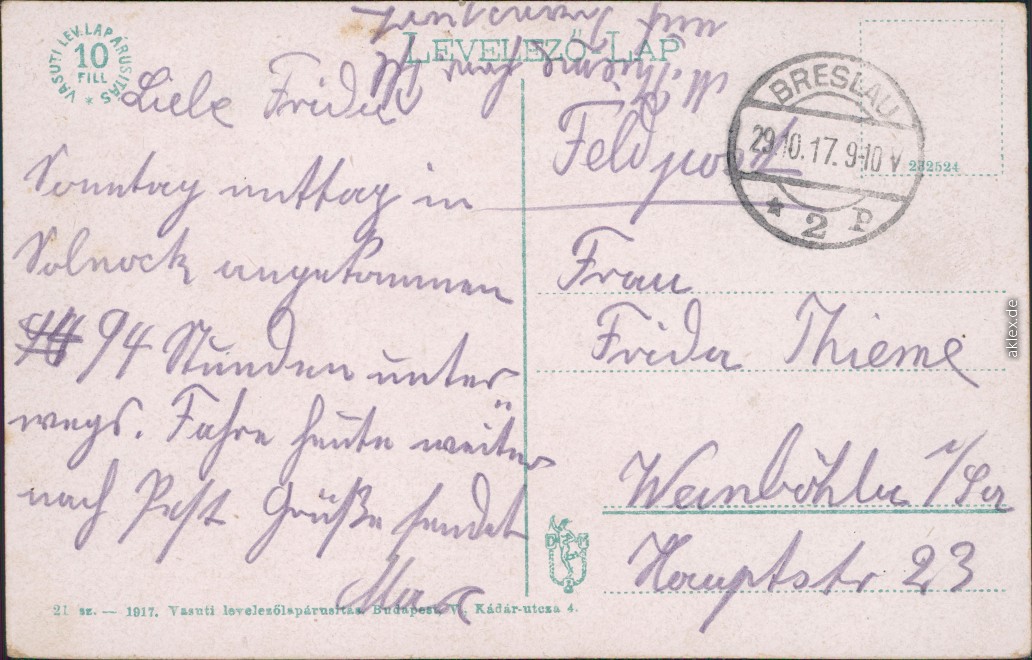 VASUTI LEV. LAPÁRUSITÁS *
10
FILL
LEVELEZŐ LAP
Liebe Frida
Sonntag mittag in
Solnock angekommen
94 Stunden unter-
wegs. Fahre heute weiter
nach Pest Grüße sendet
Max
Feldpost
BRESLAU
29.10.17. 9-10 V
* 2 P
232524
Frau
Frida Thieme
Weinböhla i/Sa
Hauptstr 23
D M
21 sz. — 1917. Vasuti levelezőlapárusitás, Budapest, V., Kádár-utcza 4.
aklex.de